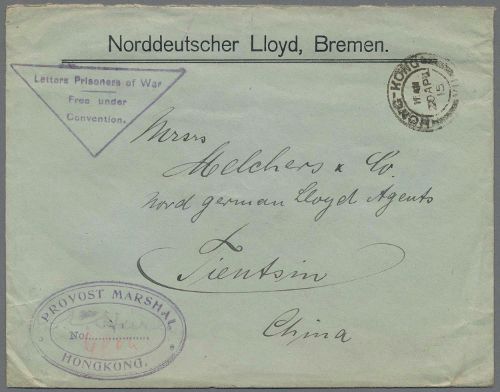 Norddeutscher Lloyd, Bremen.
Letters Prisoners of War
Free under
Convention.
HONG-KONG
20 AP
15
Messrs
Melchers & Co.
Nord german Lloyd Agents
Tientsin
China
PROVOST MARSHAL
No
HONGKONG.